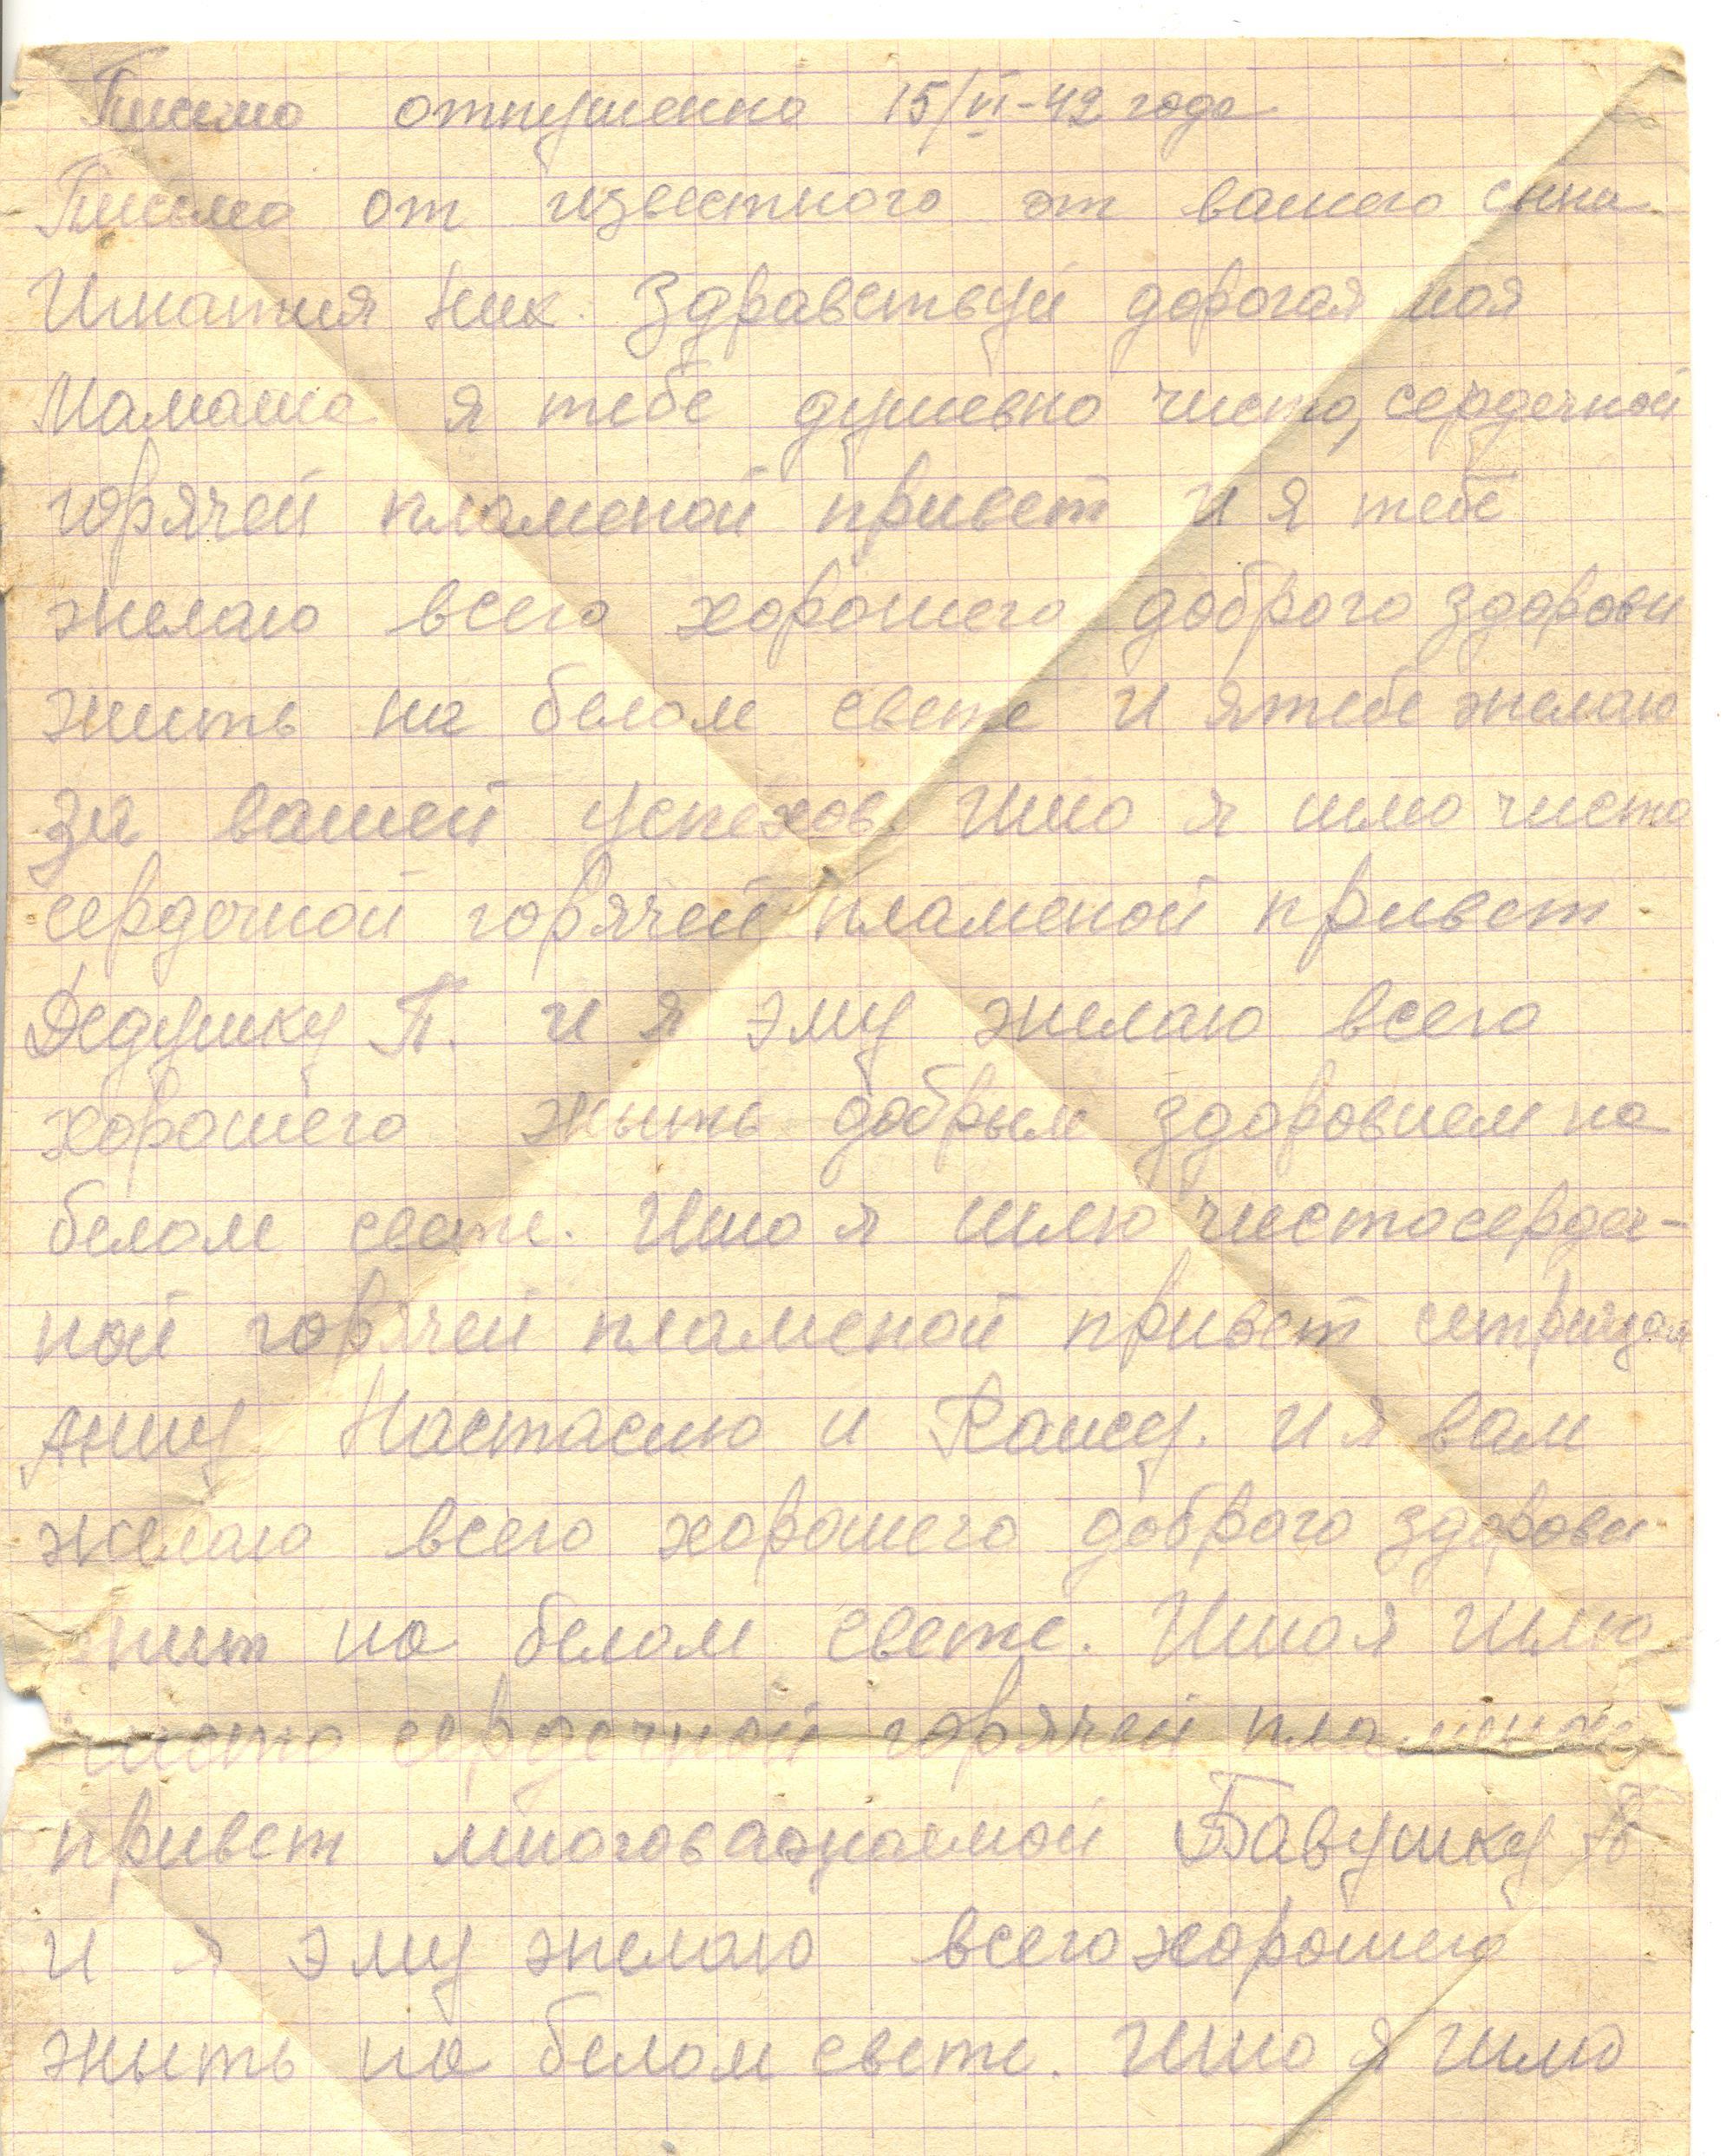 Письмо отпушенно 15/VI-42 года
Письмо от известного от вашего сына
Игнатия Ник. Здравствуй дорогая моя
Мамаша я тебе душевно чисто, сердечной
горячей пламеной привет и я тебе
желаю всего хорошего доброго здорови
жить на белом свете и я тебе желаю
за вашей успехов Ишо я шлю чисто
сердечной горячей пламеной привет
Дедушку П. и я эму желаю всего
хорошего жыть добрым здоровием на
белом свете. Ишо я шлю чистосердеч-
ной горячей пламеной привет сетрицам
Анну Настасию и Раису. и я вам
желаю всего хорошего доброго здорови
жит на белом свете. Ишо я шлю
чисто сердечной горячей пламеной
привет многоважаемой Бавушку
и я эму желаю всего хорошего
жыть на белом свете. Ишо я шлю